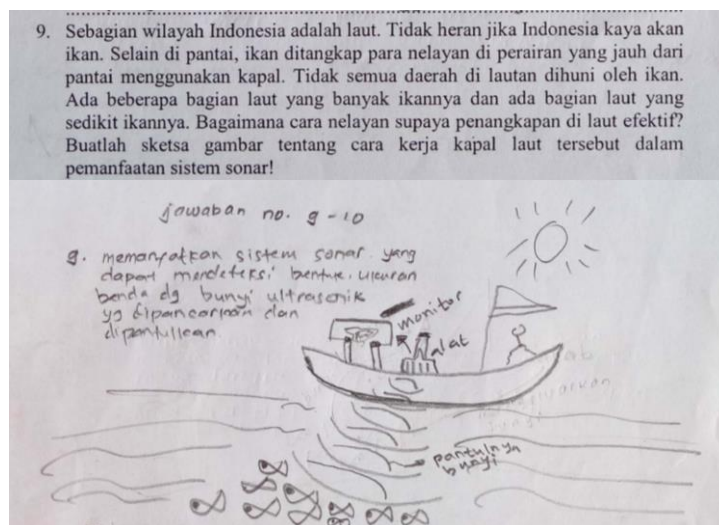 9. Sebagian wilayah Indonesia adalah laut. Tidak heran jika Indonesia kaya akan
ikan. Selain di pantai, ikan ditangkap para nelayan di perairan yang jauh dari
pantai menggunakan kapal. Tidak semua daerah di lautan dihuni oleh ikan.
Ada beberapa bagian laut yang banyak ikannya dan ada bagian laut yang
sedikit ikannya. Bagaimana cara nelayan supaya penangkapan di laut efektif?
Buatlah sketsa gambar tentang cara kerja kapal laut tersebut dalam
pemanfaatan sistem sonar!
jawaban no. 9-10
9. memanfatkan sistem sonar yang
dapat mendeteksi bentuk, ukuran
benda dg bunyi ultrasonik
yg dipancarkan dan
dipantulkan
monitor
alat
pantulnya
bunyi